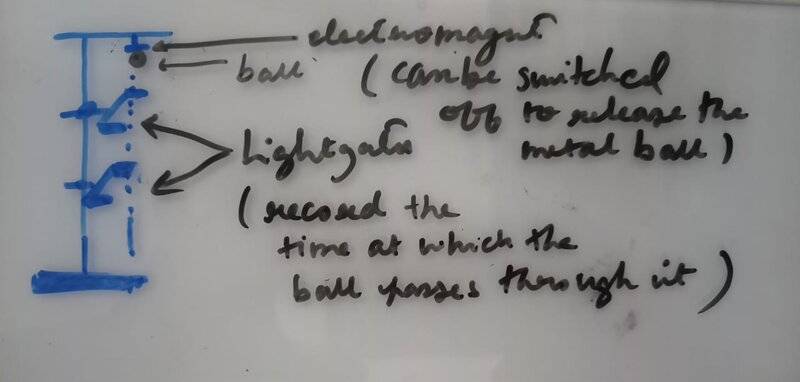 electromagnet
ball
(can be switched
off to release the
metal ball)
Lightgates
(record the
time at which the
ball passes through it)